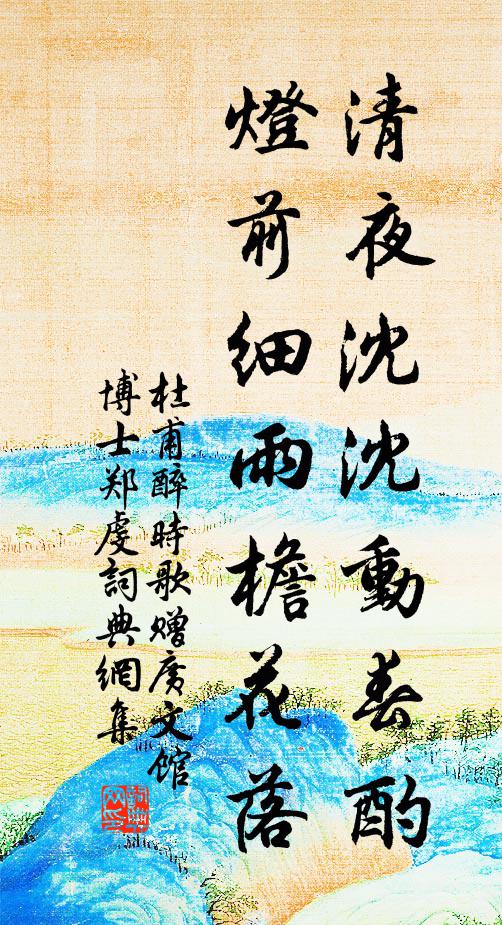 清夜沈沈動春酌
燈前細雨檐花落
杜甫醉時歌赠廣文館
博士郑虔詞典網集